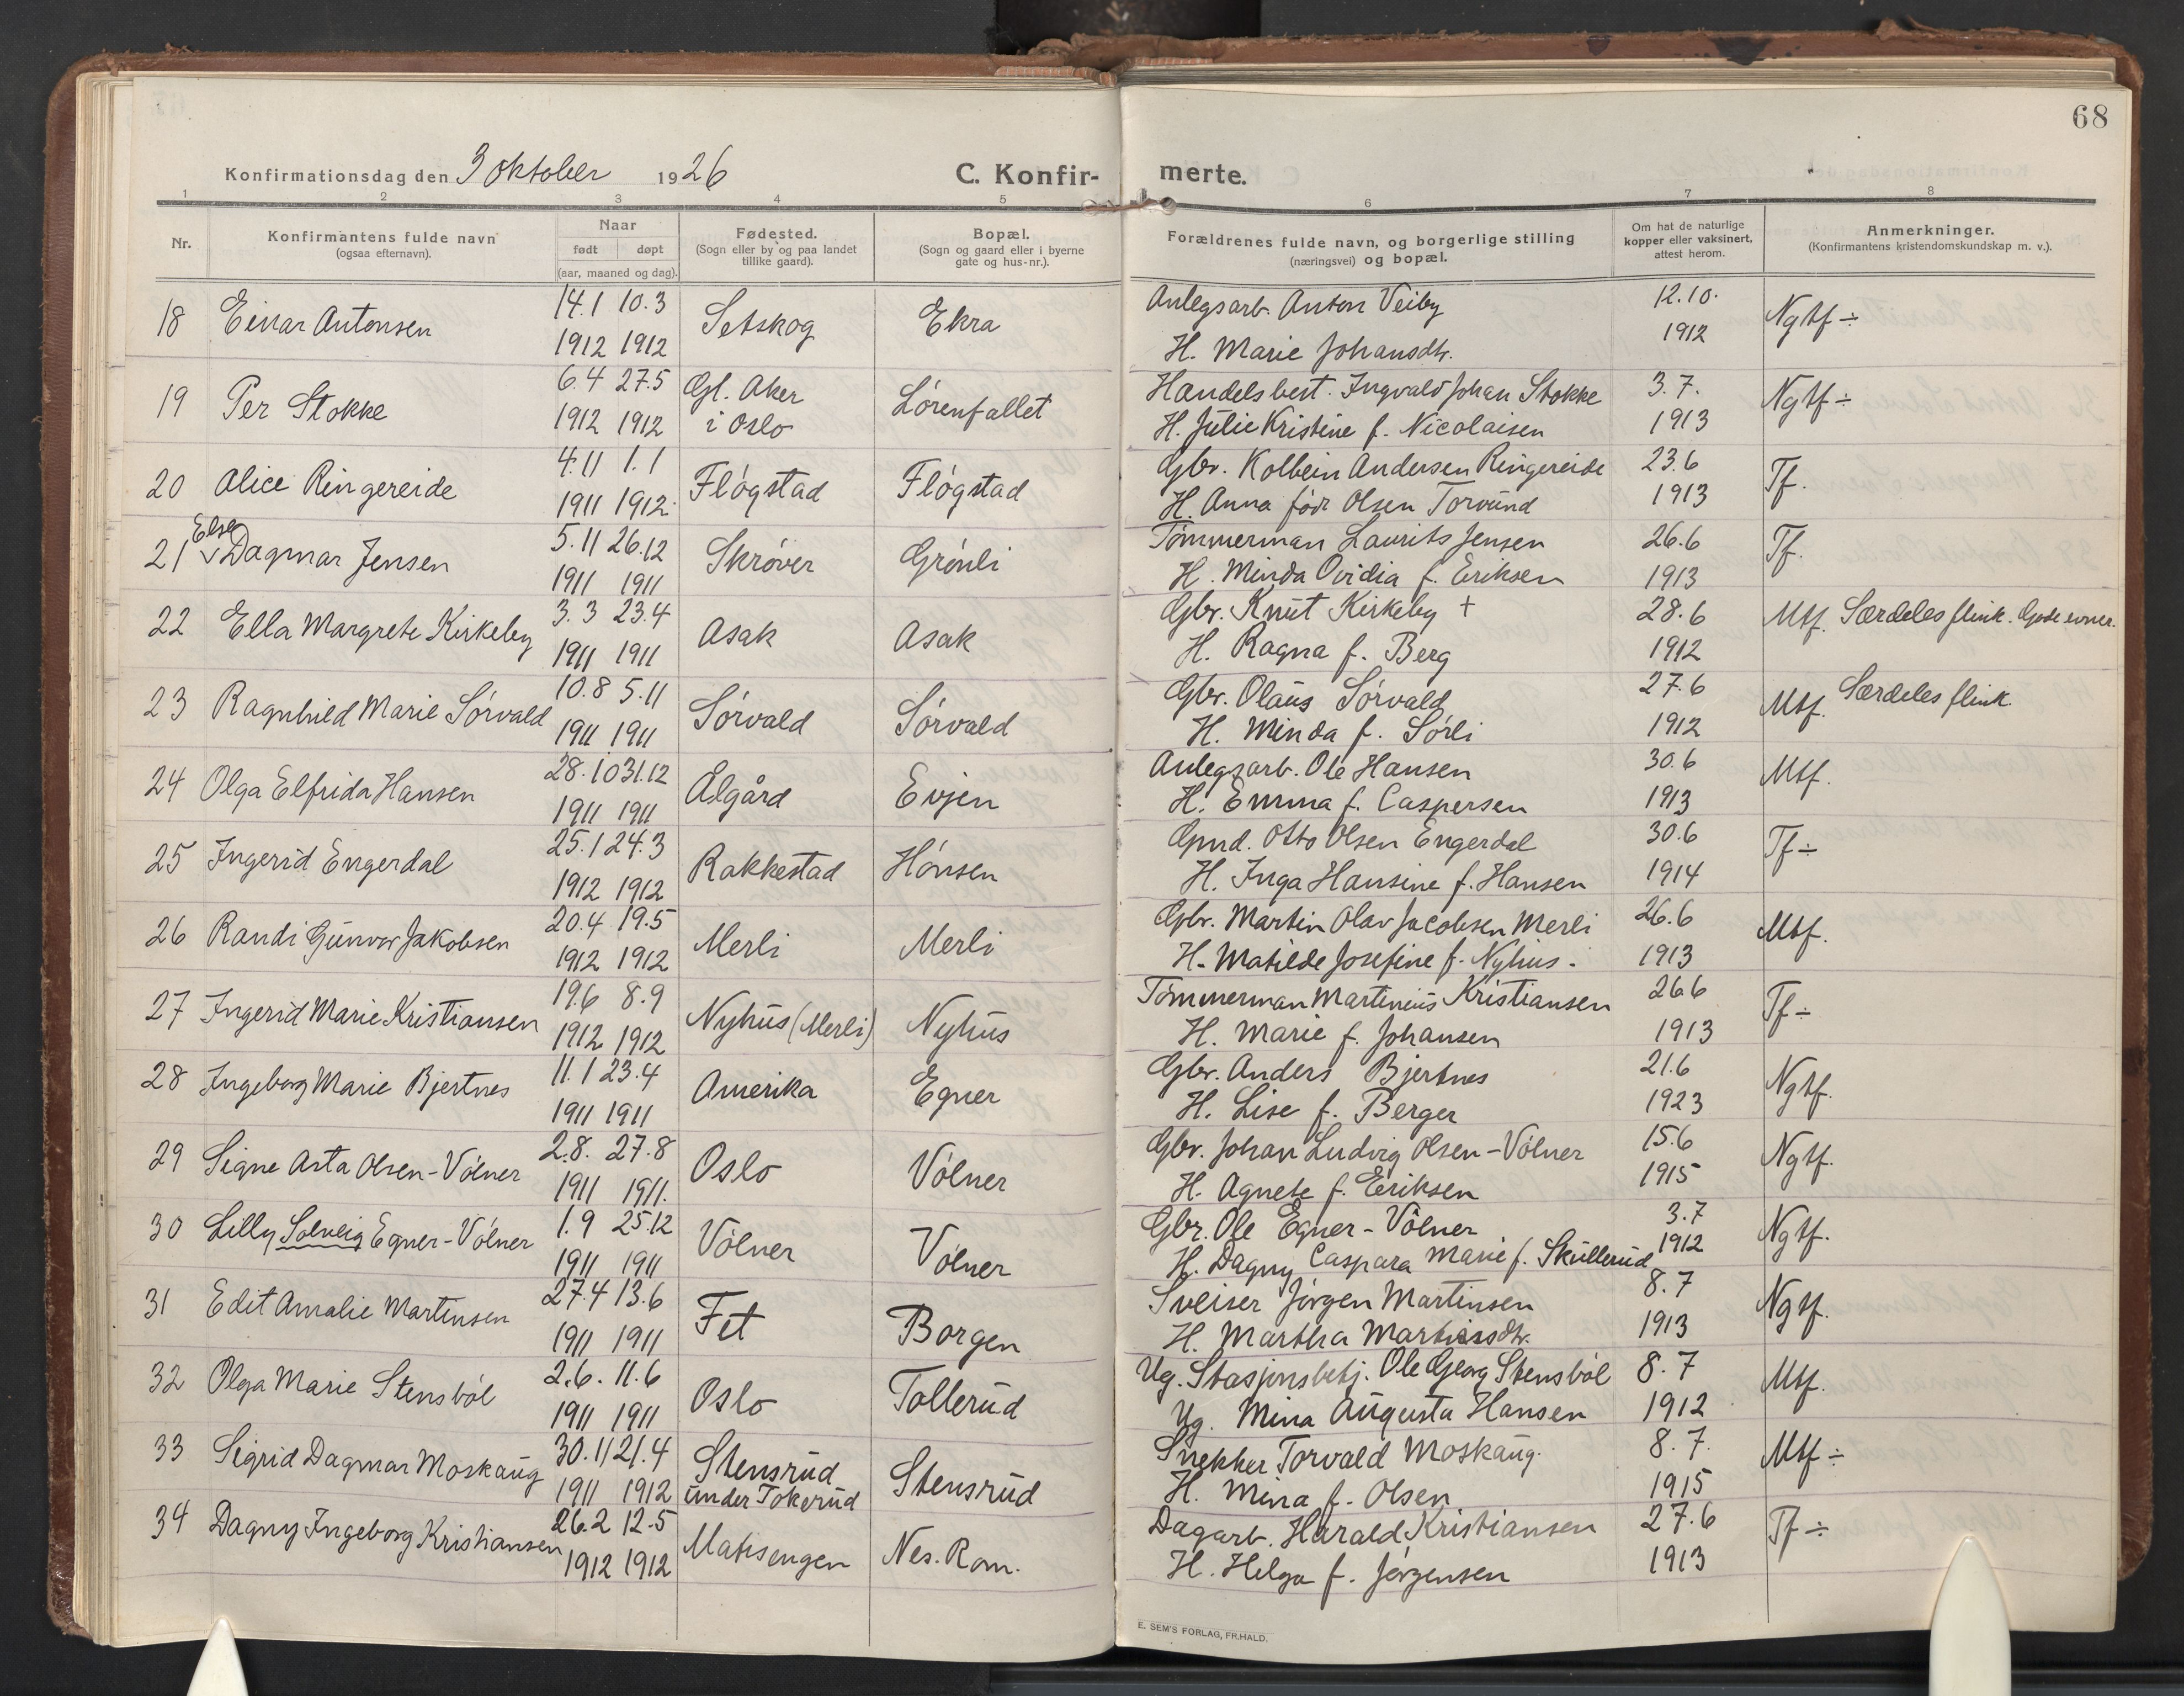 68
Konfirmationsdag den 3 oktober 1926 C. Konfir- merte.
1 2 3 4 5 6 7 8
Nr. Konfirmantens fulde navn (ogsaa efternavn). Naar født døpt (aar, maaned og dag). Fødested. (Sogn eller by og paa landet tillike gaard). Bopæl. (Sogn og gaard eller i byerne gate og hus-nr.). Forældrenes fulde navn, og borgerlige stilling (næringsvei) og bopæl. Om hat de naturlige kopper eller vaksinert, attest herom. Anmerkninger. (Konfirmantens kristendomskundskap m. v.).
18 Einar Antonsen 14.1 10.3 Setskog Ekra Anlegsarb. Anton Veiby 12.10. Ngtf ÷
1912 1912 H. Marie Johansdtr. 1912
19 Per Stokke 6.4 27.5 Gl. Aker Lørenfallet Handelsbest. Ingvald Johan Stokke 3.7. Ngtf ÷
1912 1912 i Oslo H. Julie Kristine f. Nicolaisen 1913
20 Alice Ringereide 4.11 1.1 Fløgstad Fløgstad Gbr. Kolbein Andersen Ringereide 23.6 Tf.
1911 1912. H. Anna født Olsen Torvund 1913
Else
21 v Dagmar Jensen 5.11 26.12 Skrøver Grønli Tømmerman Laurits Jensen 26.6 Tf.
1911 1911 H. Minda Ovidia f. Eriksen 1913
22 Ella Margrete Kirkeby 3.3 23.4 Asak Asak Gbr. Knut Kirkeby + 28.6 Mtf. Særdeles flink. Gode evner.
1911 1911 H. Ragna f. Berg 1912
23 Ragnhild Marie Sørvald 10.8 5.11 Sørvald Sørvald Gbr. Olaus Sørvald 27.6 Mtf. Særdeles flink.
1911 1911 H. Minda f. Sørli 1912
24 Olga Elfrida Hansen 28.10 31.12 Ålgård Evjen Anlegsarb. Ole Hansen 30.6 Mtf.
1911 1911 H. Emma f. Caspersen 1913
25 Ingerid Engerdal 25.1 24.3 Rakkestad Hønsen Gmd. Otto Olsen Engerdal 30.6 Tf ÷
1912 1912 H. Inga Hansine f. Hansen 1914
26 Randi Gunvor Jakobsen 20.4 19.5 Merli Merli Gbr. Martin Olav Jacobsen Merli 26.6 Mtf.
1912 1912 H. Matilde Josefine f. Nyhus. 1913
27 Ingerid Marie Kristiansen 19.6 8.9 Nyhus (Merli) Nyhus Tømmerman Martinius Kristiansen 26.6 Tf ÷
1912 1912 H. Marie f. Johansen 1913
28 Ingeborg Marie Bjertnes 11.1 23.4 Amerika Egner Gbr. Anders Bjertnes 21.6 Ngtf.
1911 1911 H. Lise f. Berger 1923
29 Signe Asta Olsen-Vølner 2.8. 27.8 Oslo Vølner Gbr. Johan Ludvig Olsen-Vølner 15.6 Ngtf.
1911 1911. H. Agnete f. Eriksen 1915
30 Lilly Solveig Egner-Vølner 1.9 25.12 Vølner Vølner Gbr. Ole Egner-Vølner 3.7 Ngtf.
1911 1911 H. Dagny Caspara Marie f. Skullerud 1912
31 Edit Amalie Martinsen 27.4 13.6 Fet Borgen Sveiser Jørgen Martinsen 8.7 Ngtf.
1911 1911 H. Martha Martinsdtr. 1913
32 Olga Marie Stensbøl 2.6. 11.6 Oslo Tollerud Ug. Stasjonsbetj. Ole Georg Stensbøl 8.7 Mtf.
1911 1911 Ug. Mina Augusta Hansen 1912
33 Sigrid Dagmar Moskaug 30.11 21.4 Stensrud Stensrud Snekker Torvald Moskaug. 8.7. Mtf ÷
1911 1912 under Tokerud H. Mina f. Olsen 1915
34 Dagny Ingeborg Kristiansen 26.2 12.5 Matisengen Nes. Rom. Dagarb. Harald Kristiansen 27.6 Tf ÷
1912 1912 H. Helga f. Jørgensen 1913
E. SEM'S FORLAG, FR.HALD.